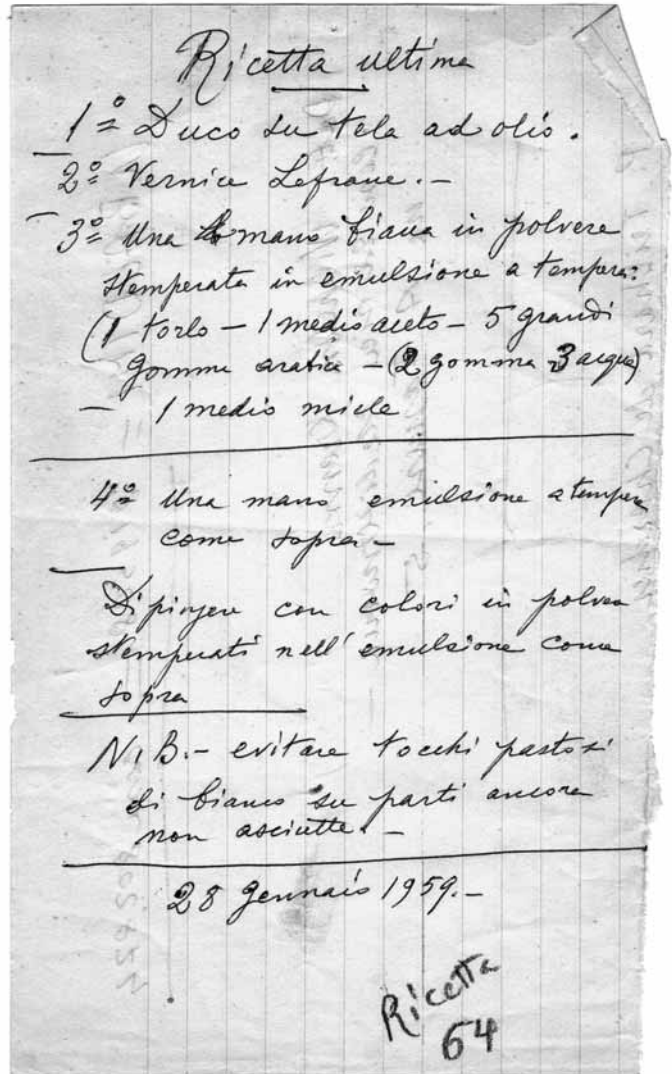 Ricetta ultima
1º Duco su tela ad olio.
2º Vernice Lefranc.-
3º Una mano bianca in polvere
stemperata in emulsione a tempera:
(1 torlo - 1 medio aceto - 5 grandi
gomme arabica - (2 gomma 3 acqua)
- 1 medio miele
4º Una mano emulsione a tempera
come sopra -
Dipingere con colori in polvere
stemperati nell'emulsione come
sopra
N.B.- evitare tocchi pastosi
di bianco su parti ancora
non asciutte.-
28 Gennaio 1959.-
Ricetta
64